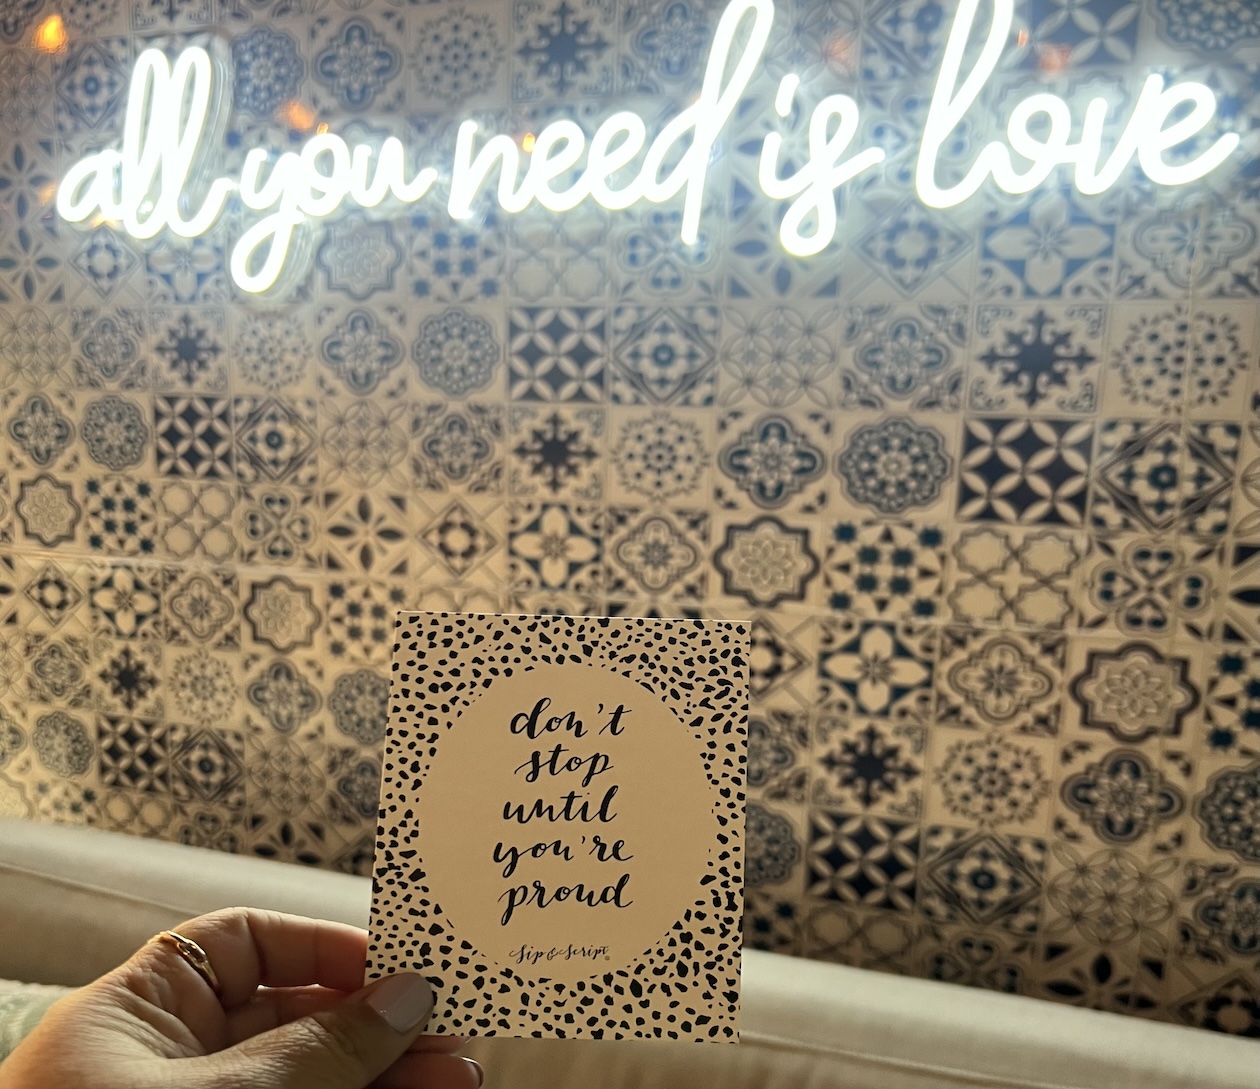 all you need is love
don't
stop
until
you're
proud
Sip & Script